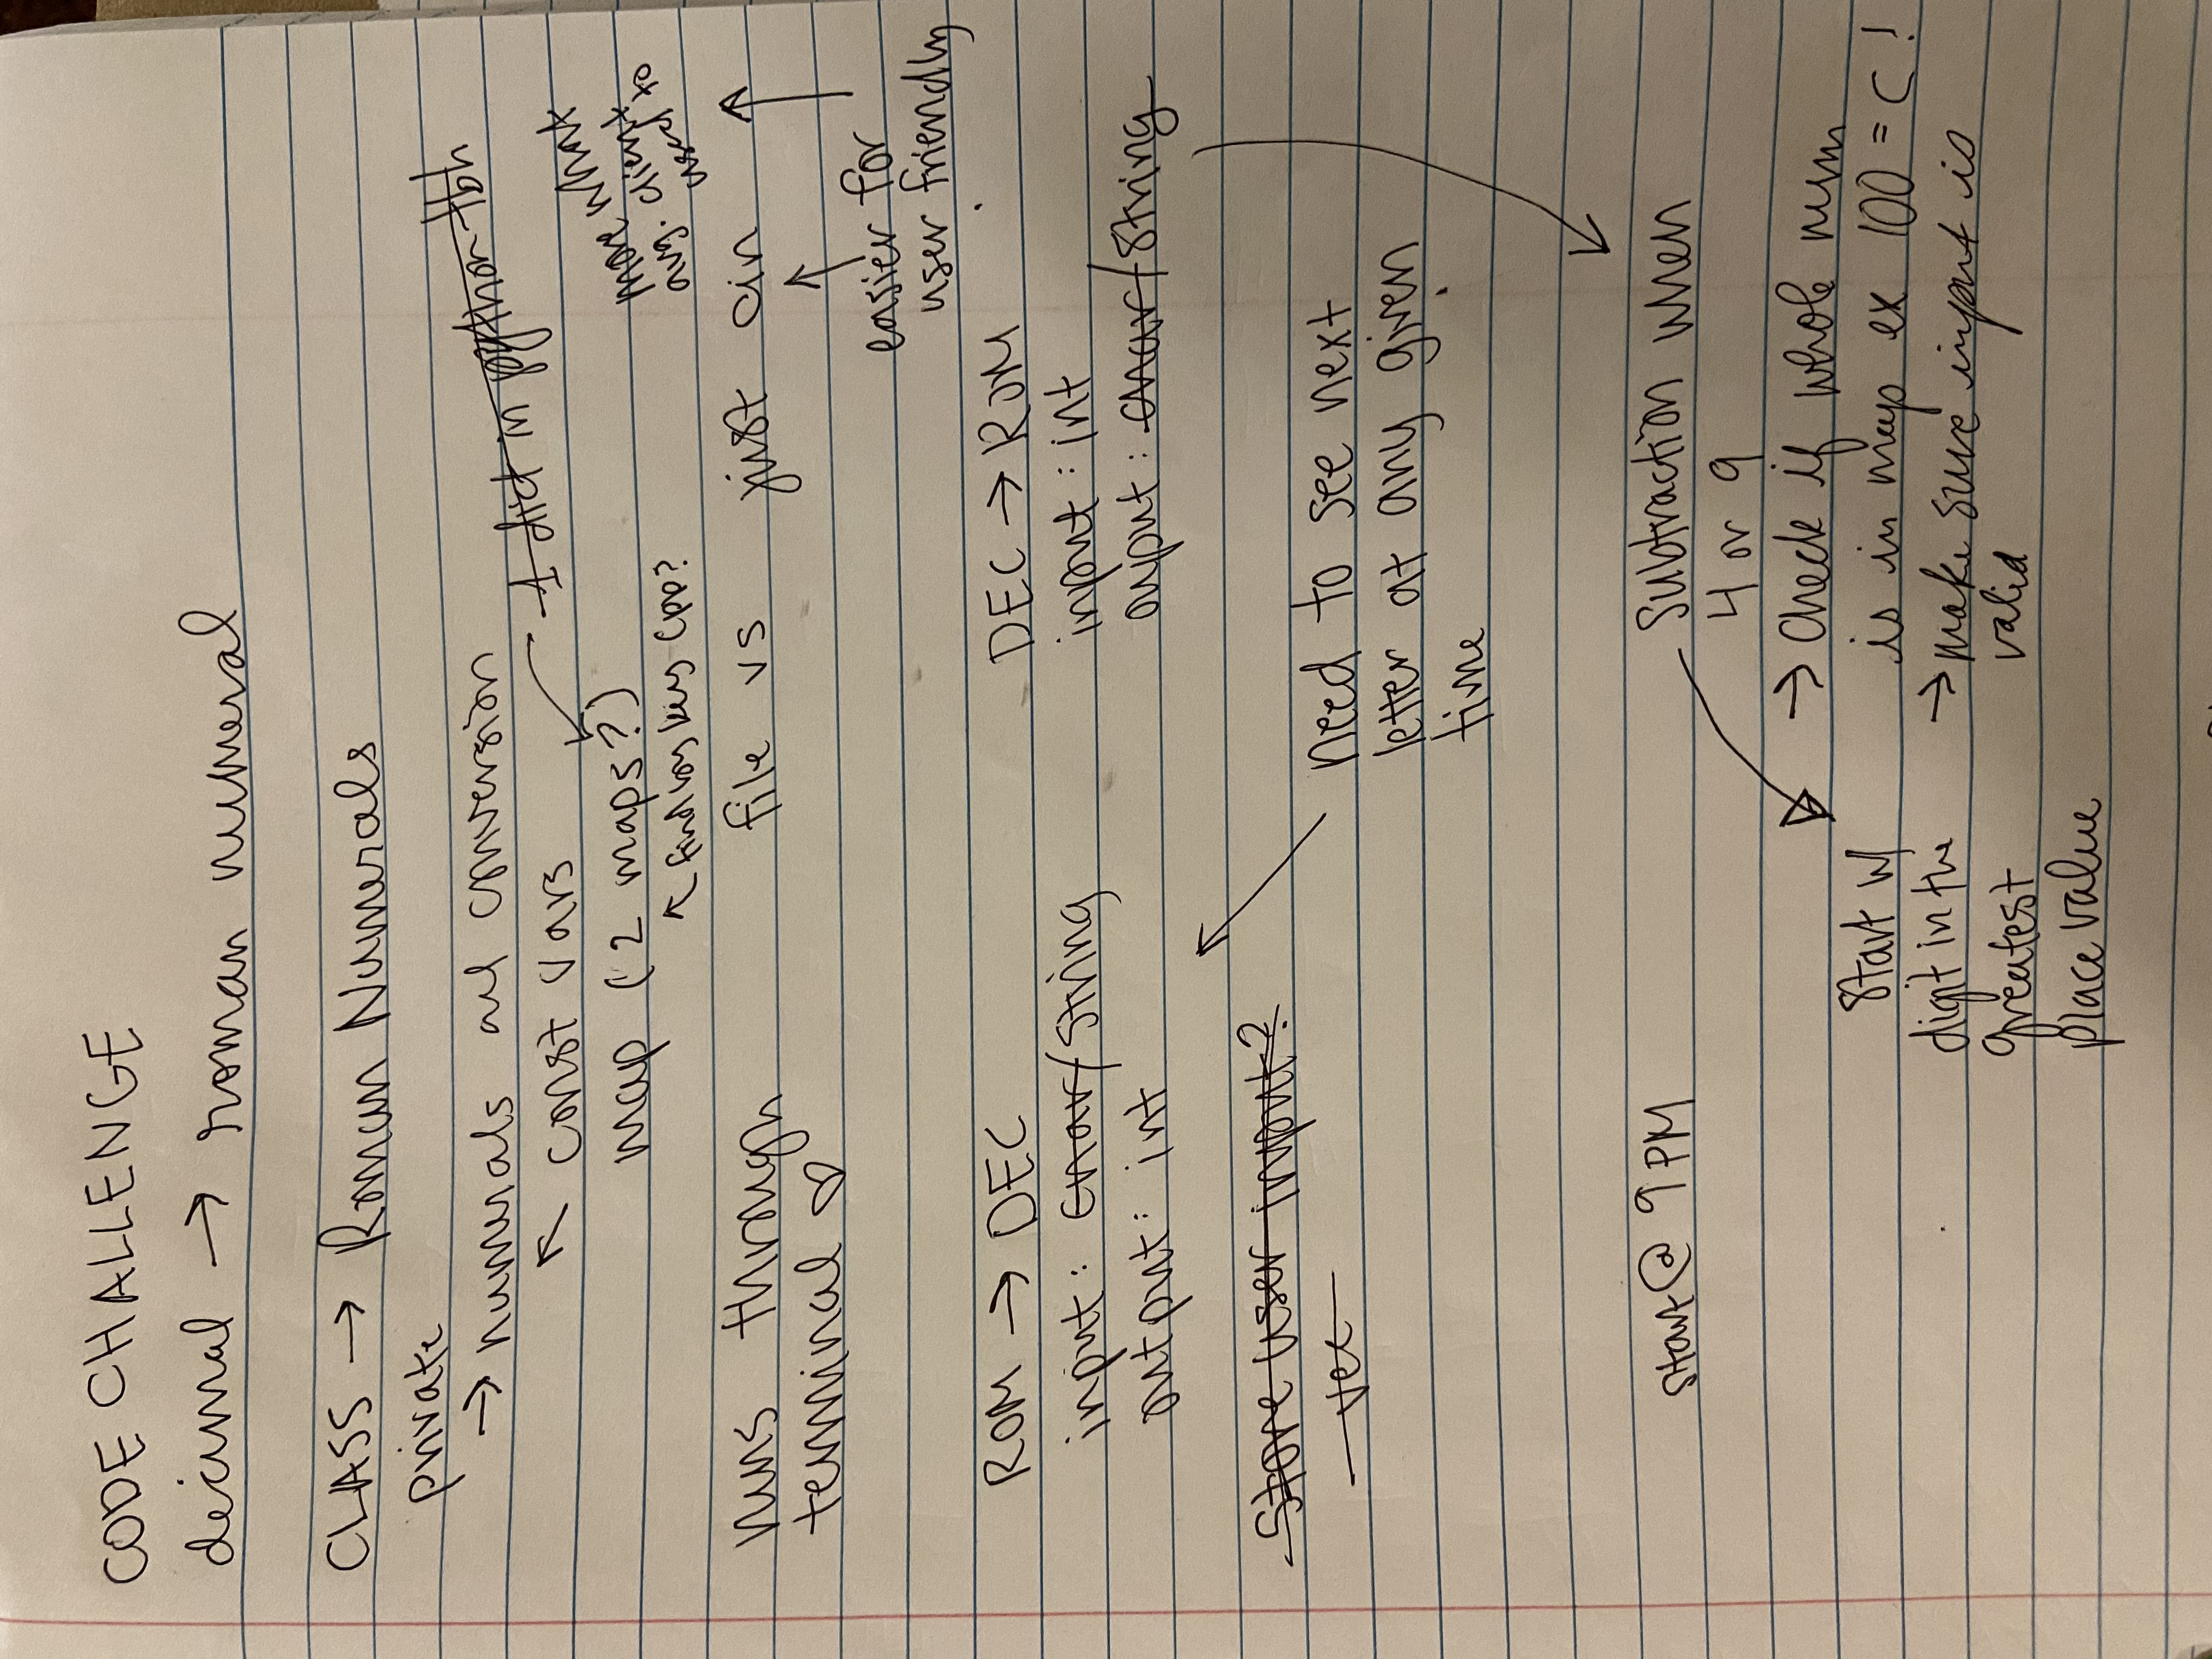 CODE CHALLENGE
decimal → roman numeral
CLASS → Roman Numerals
private
→ numerals and conversion
↖ const vars
1 dict in python tbh
map (2 maps?)
↖ find by key Cpp?
more what
avg. client
used to
runs through
terminal ♡
file vs just cin
easier for
user friendly
ROM → DEC
input: char/string
output: int
DEC → ROM
input: int
ouput: char/string
Store user input?
vec
need to see next
letter at any given
time
start @ 9 PM
subtraction when
4 or 9
→ Check if whole num
is in map ex 100 = C!
→ make sure input is
valid
start w/
digit in the
greatest
place value